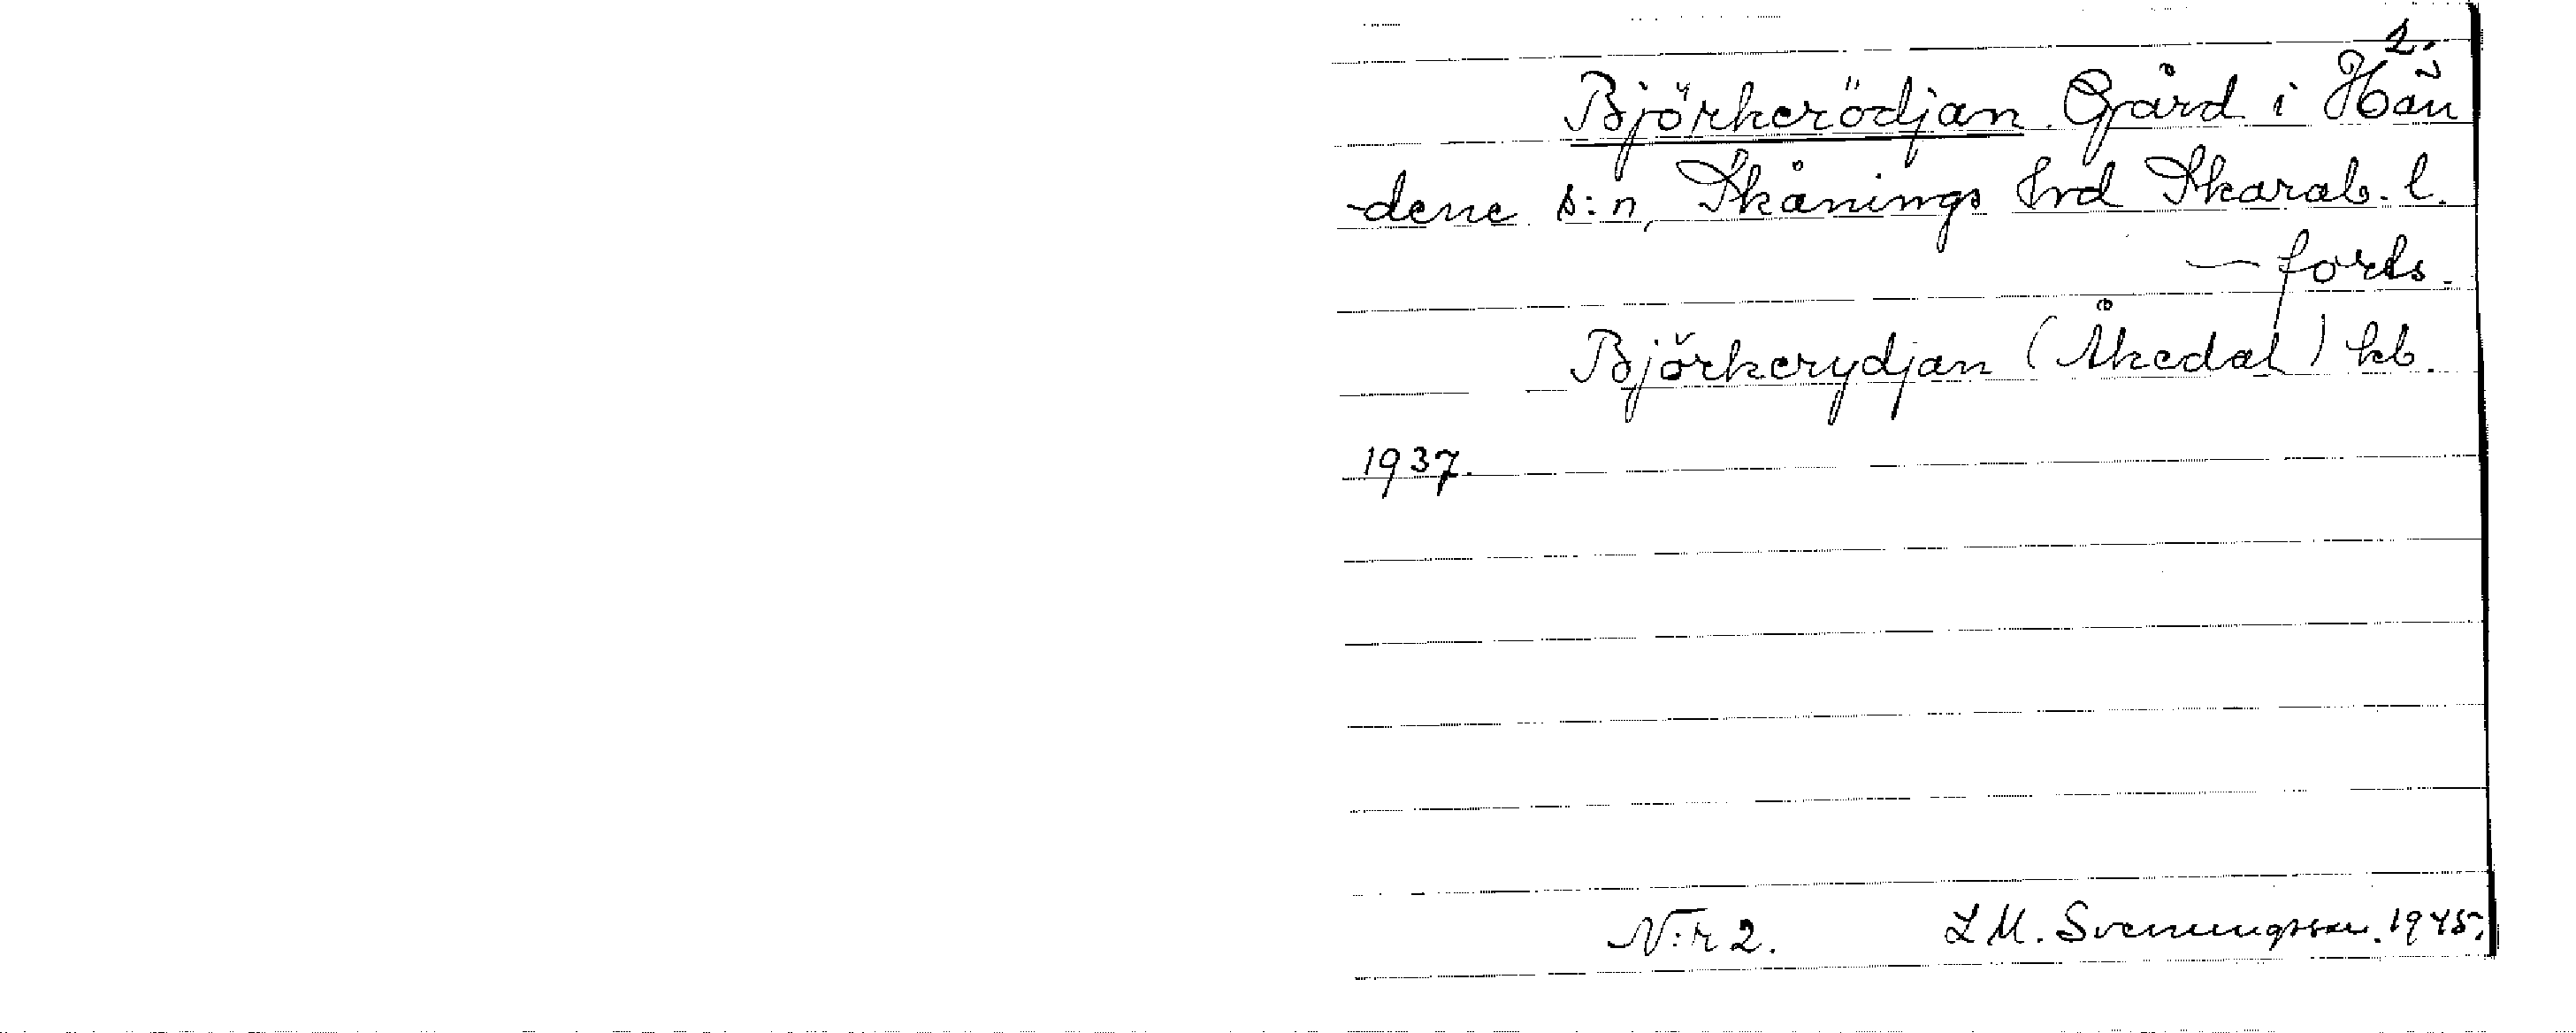 2.
Björkerödjan. Gård i Hän
-dene s:n, Skånings hrd Skarab. l.
— forts.
Björkerydjan (Åkedal) kb.
1937.
N:r 2. L M. Svenungsson. 1945.